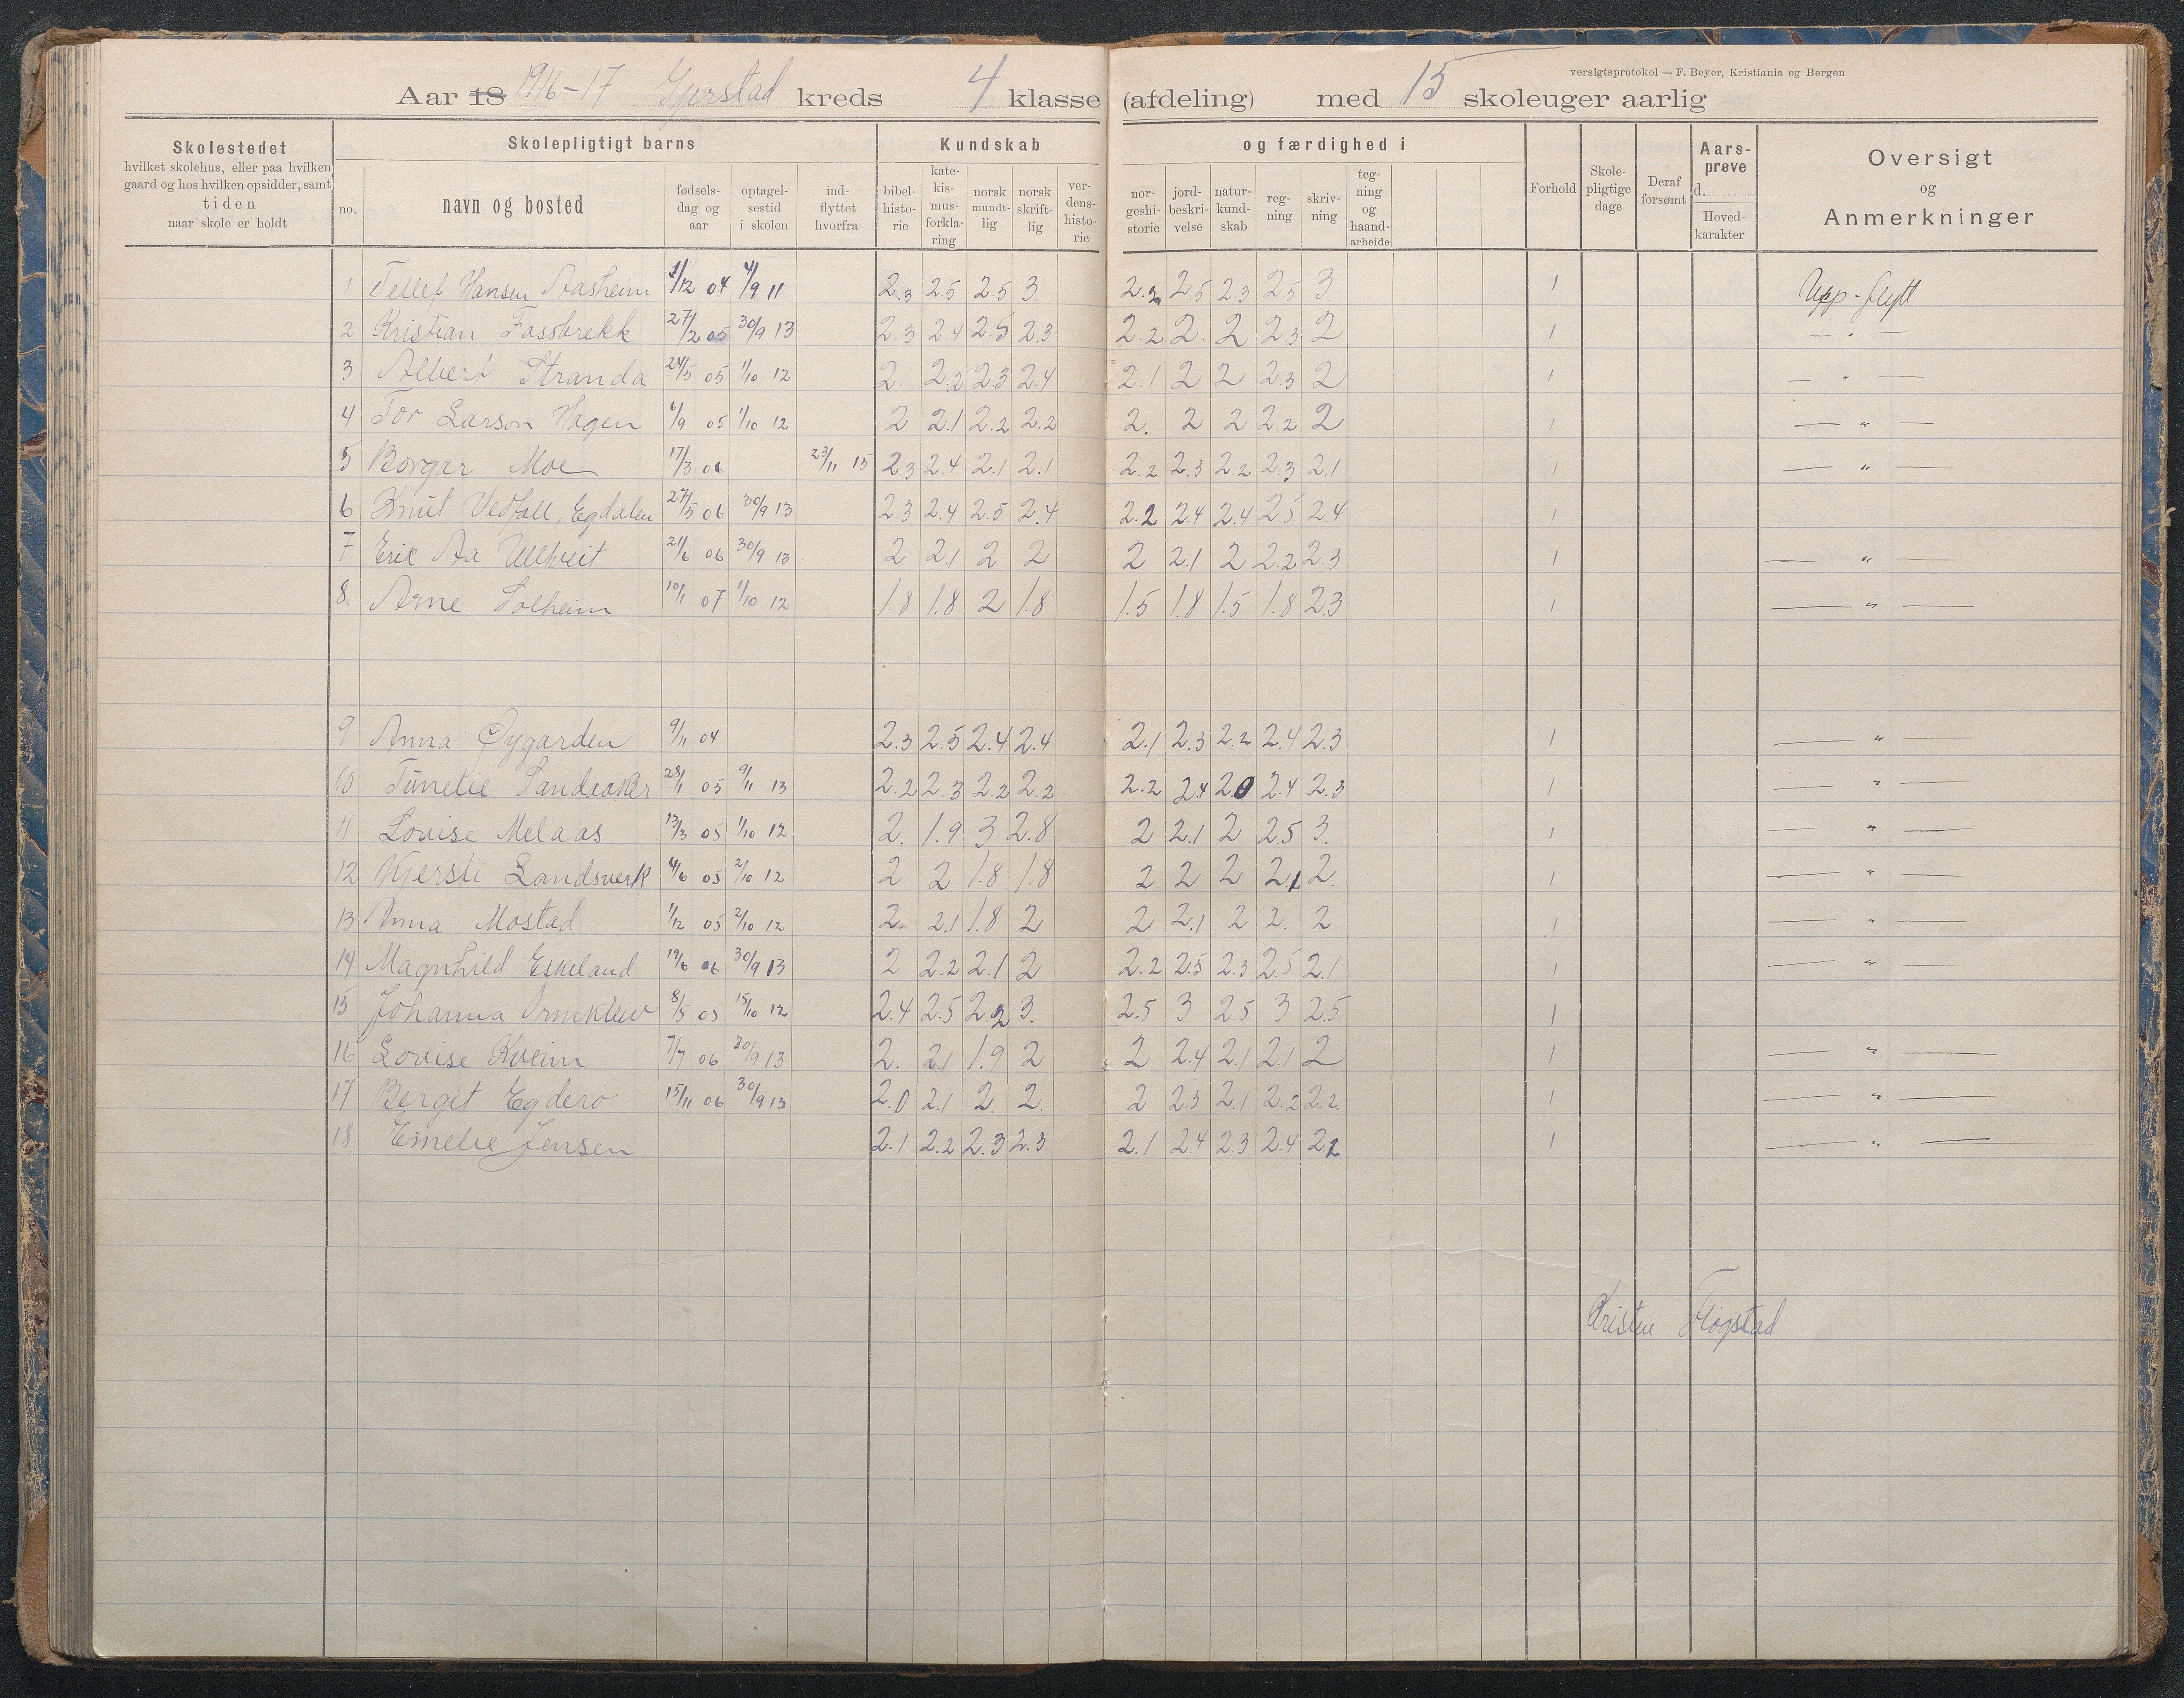 versigtsprotokol — F. Beyer, Kristiania og Bergen
Aar 18 1916-17 Gjerstad kreds 4 klasse (afdeling) med 15 skoleuger aarlig
Skolestedet
hvilket skolehus, eller paa hvilken
gaard og hos hvilken opsidder, samt
tiden
naar skole er holdt
Skolepligtigt barns
no.
navn og bosted
fødsels-
dag og
aar
optagel-
sestid
i skolen
ind-
flyttet
hvorfra
Kundskab og færdighed i
bibel-
histo-
rie
kate-
kis-
mus-
forkla-
ring
norsk
mundt-
lig
norsk
skrift-
lig
ver-
dens-
histo-
rie
nor-
geshi-
storie
jord-
beskri-
velse
natur-
kund-
skab
reg-
ning
skriv-
ning
teg-
ning
og
haand-
arbeide
Forhold
Skole-
pligtige
dage
Deraf
forsømt
Aars-
prøve
d.
Hoved-
karakter
Oversigt
og
Anmerkninger
1 Tellef Hansen Aasheim 1/12 04 4/9 11 2.3 2.5 2.5 3. 2.2 2.5 2.3 2.5 3. 1 Upp-flytt
2 Kristian Fossbrekk 27/2 05 30/9 13 2.3 2.4 2.5 2.3 2.2 2. 2 2.3 2 1 — " —
3 Albert Stranda 24/5 05 1/10 12 2. 2.2 2.3 2.4 2.1 2 2 2.3 2 1 — " —
4 Tor Larson Hagen 6/9 05 1/10 12 2 2.1 2.2 2.2 2. 2 2 2.2 2 1 — " —
5 Borgar Moe 17/3 06 23/11 15 2.3 2.4 2.1 2.1 2.2 2.3 2.2 2.3 2.1 1 — " —
6 Knut Vedfall, Egdalen 27/5 06 30/9 13 2.3 2.4 2.5 2.4 2.2 2.4 2.4 2.5 2.4 1
7 Eric Aa Ullhveit 21/6 06 30/9 13 2 2.1 2 2 2 2.1 2 2.2 2.3 1 — " —
8. Arne Solheim 10/1 07 1/10 12 1.8 1.8 2 1.8 1.5 1.8 1.5 1.8 2.3 1 — " —
9 Anna Øygarden 9/11 04 2.3 2.5 2.4 2.4 2.1 2.3 2.2 2.4 2.3 1 — " —
10 Tünelie Sandaaker 28/1 05 9/11 13 2.2 2.3 2.2 2.2 2.2 2.4 2.0 2.4 2.3 1 — " —
11 Louise Melaas 13/3 05 1/10 12 2. 1.9 3 2.8 2 2.1 2 2.5 3. 1 — " —
12 Kjersti Landsverk 4/6 05 2/10 12 2 2 1.8 1.8 2 2 2 2.1 2. 1 — " —
13 Anna Mostad 1/12 05 2/10 12 2 2.1 1.8 2 2 2.1 2 2. 2 1 — " —
14 Magnhild Eskeland 19/6 06 30/9 13 2 2.2 2.1 2 2.2 2.5 2.3 2.5 2.1 1 — " —
15 Johanna Ormkleiv 8/5 05 15/10 12 2.4 2.5 2.2 3. 2.5 3 2.5 3 2.5 1
16 Lovise Kveim 7/7 06 30/9 13 2. 2.1 1.9 2 2 2.4 2.1 2.1 2 1 — " —
17 Bergit Egderø 15/11 06 30/9 13 2.0 2.1 2. 2. 2 2.3 2.1 2.2 2.2. 1 — " —
18 Emelie Jensen 2.1 2.2 2.3 2.3 2.1 2.4 2.3 2.4 2.2 1 — " —
Kristen Fløgstad